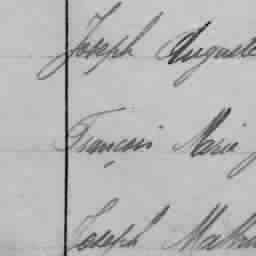 Joseph Auguste
François Marie
Joseph Mathu